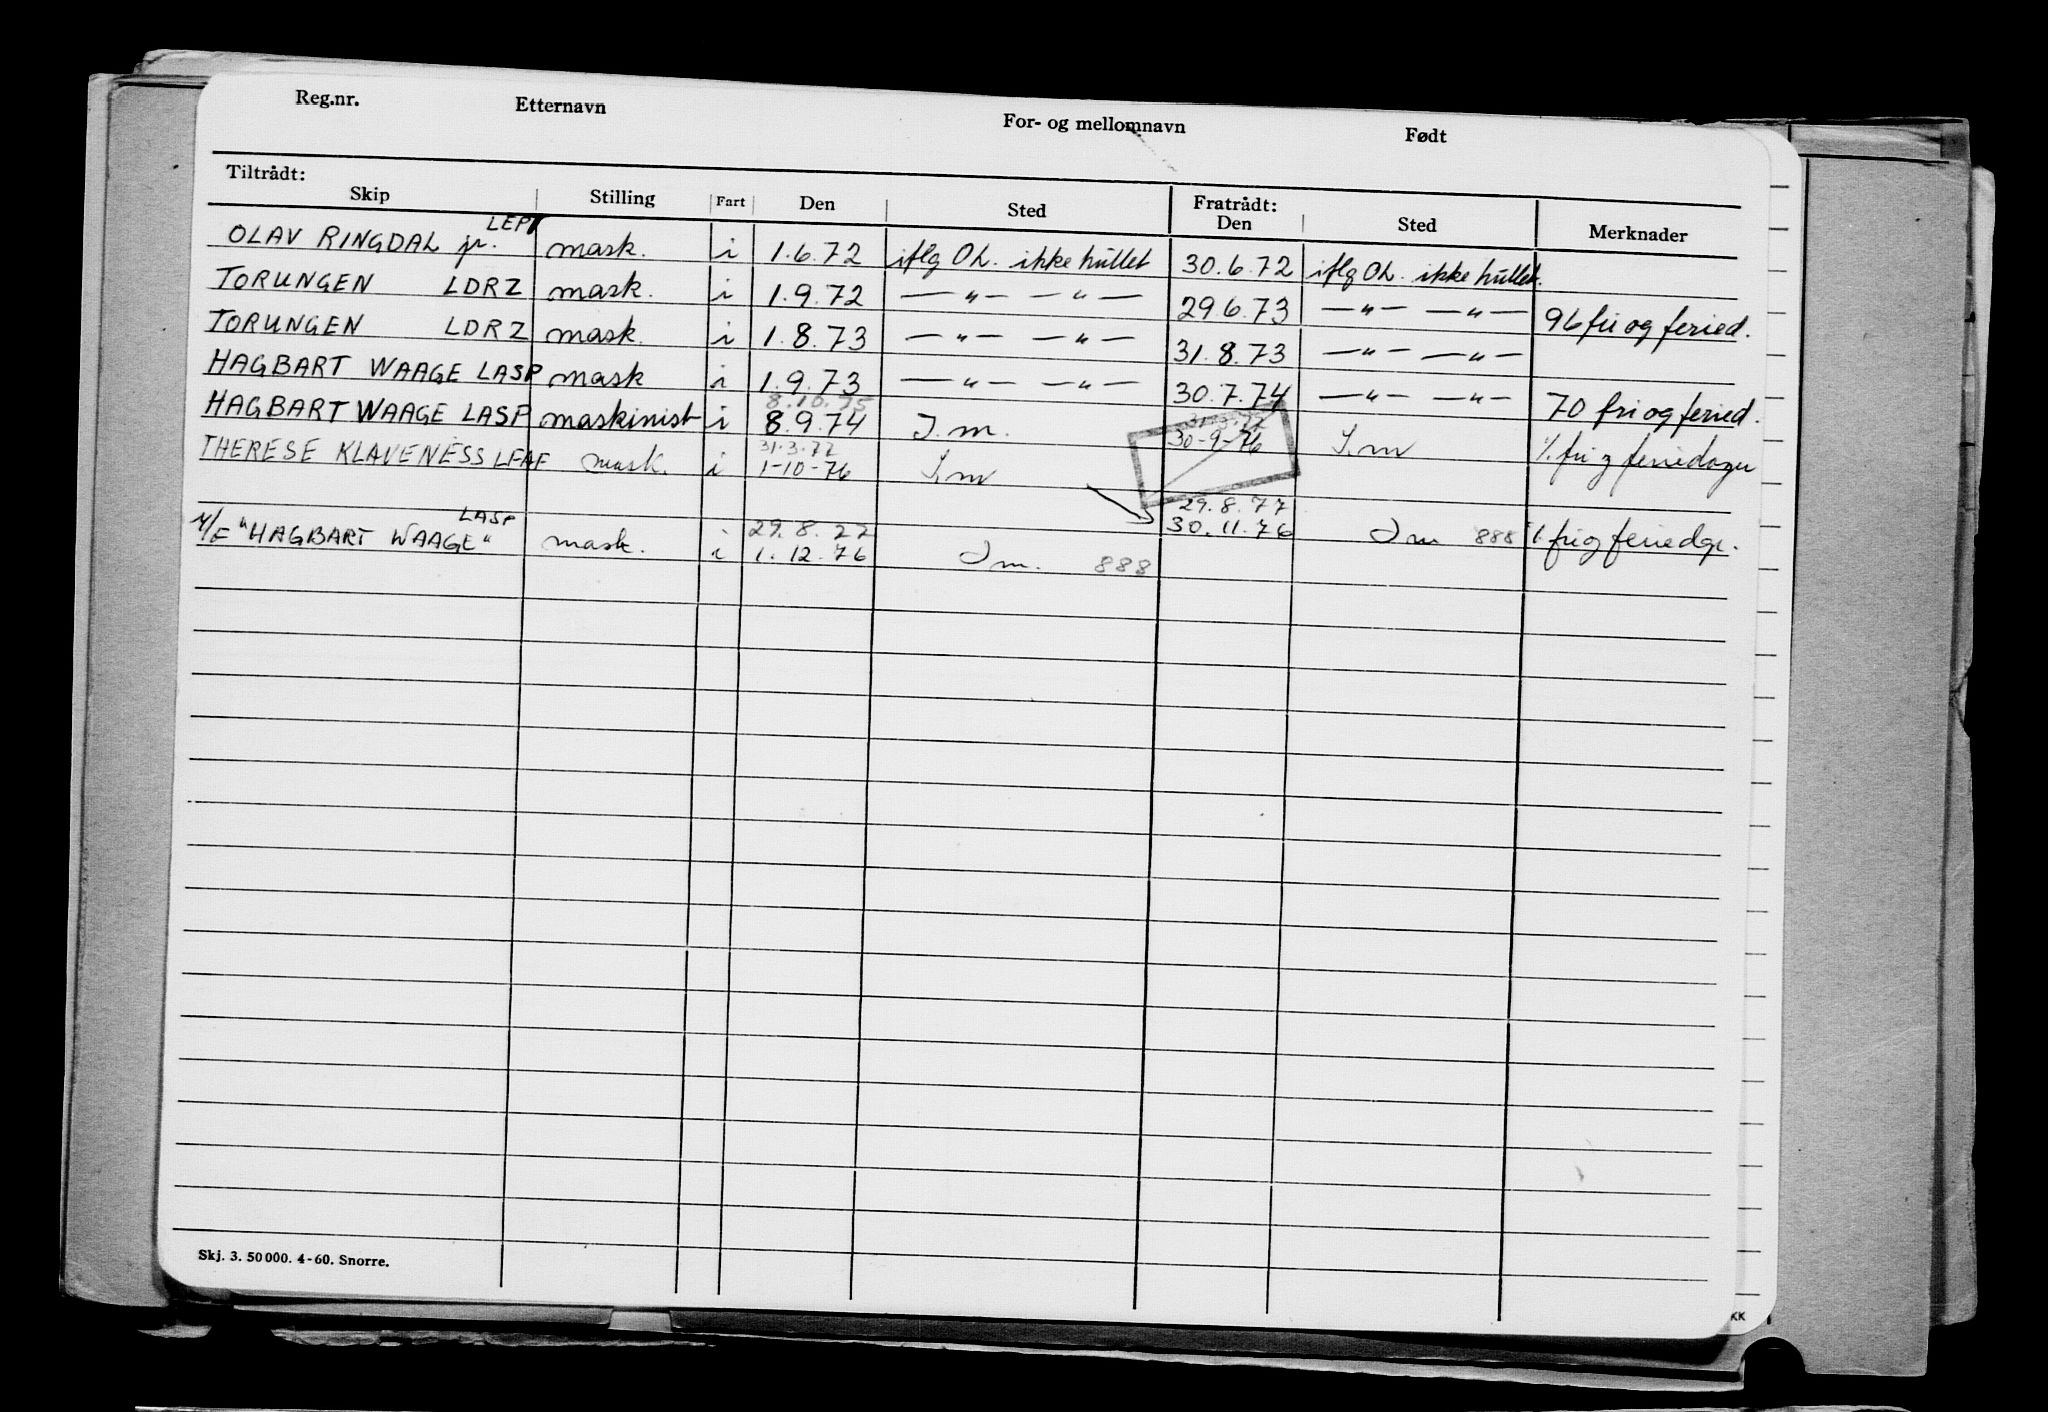 Reg.nr. Etternavn For- og mellomnavn Født
Tiltrådt: Fratrådt:
Skip Stilling Fart Den Sted Den Sted Merknader
LEPV
OLAV RINGDAL jr. mask. i 1.6.72 iflg Oh. ikke hullet 30.6.72 iflg Oh. ikke hullet.
TORUNGEN LDRZ mask. i 1.9.72 — " — — " — 29.6.73 — " — — " — 96 fri og feried.
TORUNGEN LDRZ mask. i 1.8.73 — " — — " — 31.8.73 — " — — " —
HAGBART WAAGE LASP mask i 1.9.73 — " — — " — 30.7.74 — " — — " — 70 fri og feried.
8.10.75 31.3.77
HAGBART WAAGE LASP maskinist i 8.9.74 I.m. 30-9-76 I.m % fri og feriedager
31.3.77
THERESE KLAVENESS LFAF mask. i 1-10-76 I.m
29.8.77
30.11.76 I m 888 % fri og feriedgr.
LASP 29.8.77
M/S "HAGBART WAAGE" mask. i 1.12.76 I m. 888
Skj. 3. 50 000. 4-60. Snorre.
KK